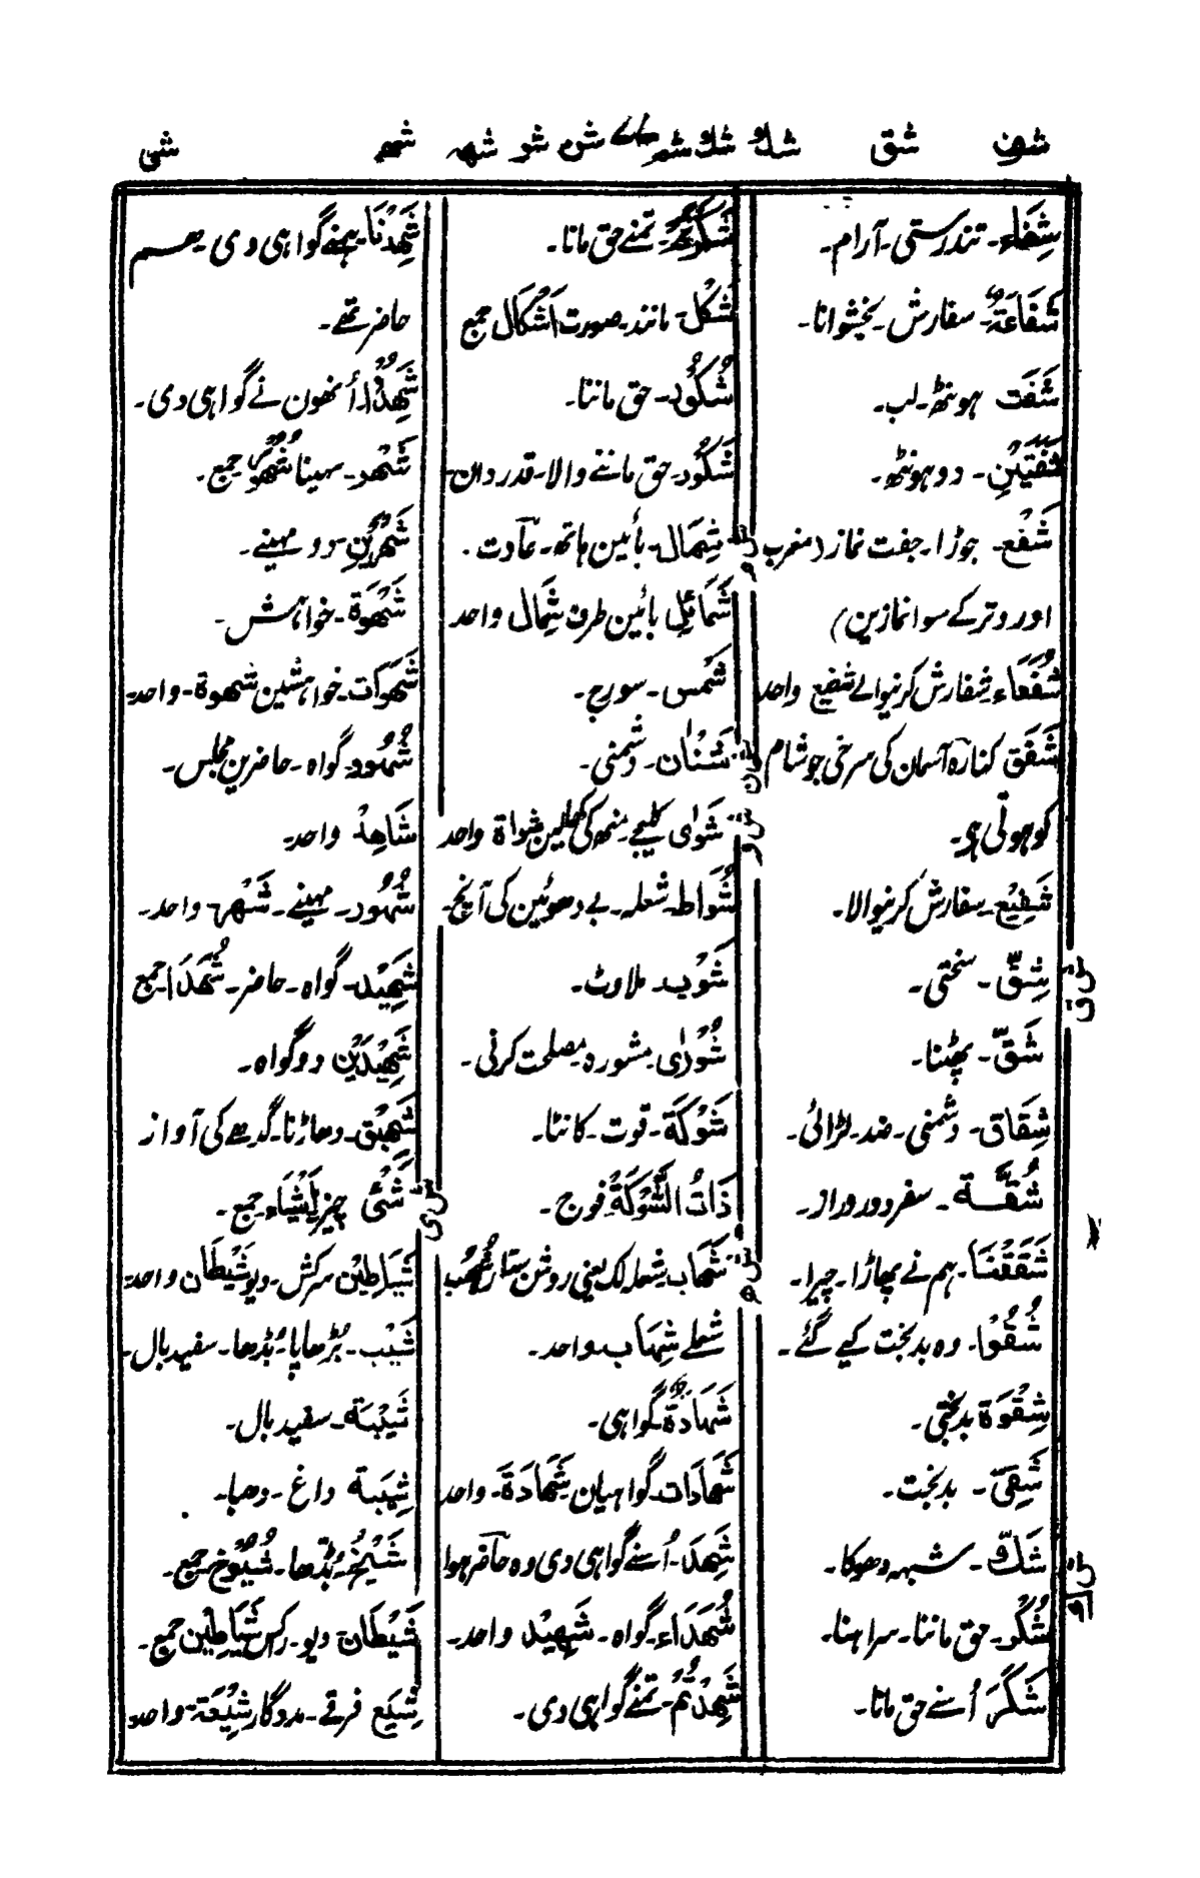 شف شق شك شك شم شن شو شھ شھ شی
شِفَاء۔ تندرستی۔ آرام۔
شَفَاعَةٌ۔ سفارش۔ بخشوانا۔
شَفَت ہونٹھ۔ لب۔
شَفَتَیْنِ۔ دو ہونٹھ۔
شَفْع۔ جوڑا۔ جفت نماز (مغرب
اور وتر کے سوا نمازین)
شُفَعَاء۔ سفارش کرنیوالے شفیع واحد
شَفَق کنارہ آسمان کی سرخی جو شام
کو ہوتی ہو۔
شَفِیْع۔ سفارش کرنیوالا۔
ش ق
شِقّ۔ سختی۔
شَقّ۔ پھٹنا۔
شِقَاق۔ دشمنی۔ ضد۔ لڑائی۔
شُقَّة۔ سفر دور دراز۔
شَقَقْنَا۔ ہم نے پھاڑا۔ چیرا۔
شُقُوْا۔ وہ بدبخت کیے گئے۔
شِقْوَة بدبختی۔
شَقِیّ۔ بدبخت۔
ش ك
شَكّ۔ شبہہ دھوکا۔
شُكْر۔ حق ماننا۔ سراہنا۔
شَكَرَ اُسنے حق مانا۔
شَكَرْتُمْ۔ تمنے حق مانا۔
شَكْل۔ مانند۔ صورت اَشْكَال جمع
شُكُوْر۔ حق ماننا۔
شَكُوْر۔ حق ماننے والا۔ قدردان
ش م
شِمَال۔ بائین ہاتھ۔ عادت۔
شَمَائِل بائین طرف شِمَال واحد
شَمْس۔ سورج۔
ش ن
شَنَاٰن۔ دشمنی۔
ش و
شَوٰی کلیجے۔ منھ کی کھالین شواة واحد
شُوَاظ۔ شعلہ۔ بے دھوئین کی آنچ۔
شَوْب۔ ملاوٹ۔
شُوْرٰی۔ مشورہ۔ مصلحت کرنی۔
شَوْكَة۔ قوت۔ کانٹا۔
ذَاتُ الشَّوْكَةِ فوج۔
ش ہ
شِهَاب۔ شعلہ لک یعنی روشن ستارہ شُهُب
شعلے شِهَاب۔ واحد۔
شَهَادَةٌ۔ گواہی۔
شَهَادَات۔ گواہیان شَهَادَة۔ واحد
شَهِدَ۔ اُسنے گواہی دی وہ حاضر ہوا
شُهَدَاء۔ گواہ۔ شَهِیْد واحد۔
شَهِدْتُمْ۔ تمنے گواہی دی۔
شَهِدْنَا۔ ہمنے گواہی دی۔ ہم
حاضر تھے۔
شَهِدُوْا۔ اُنھون نے گواہی دی۔
شَهْر۔ مہینا شُهُوْر جمع۔
شَهْرَیْنِ۔ دو مہینے۔
شَهْوَة۔ خواہش۔
شَهَوَات۔ خواہشین شهوة۔ واحد
شُهُوْد گواہ۔ حاضرین مجلس۔
شَاهِدْ واحد۔
شُهُوْر۔ مہینے۔ شَهْر واحد۔
شَهِیْد۔ گواہ۔ حاضر۔ شُهَدَا جمع
شَهِیْدَیْن دو گواہ۔
شَهِیْق۔ دھاڑنا۔ گدھے کی آواز
ش ی
شَیْئ چیز اَشْیَاء جمع۔
شَیَاطِیْن سرکش۔ دیو شَیْطَان واحد
شَیْب۔ بُڑھاپا۔ بُڈھا۔ سفید بال۔
شَیْبَة۔ سفید بال۔
شِیَة داغ۔ دھبا۔
شَیْخ۔ بُڈھا۔ شُیُوْخ جمع۔
شَیْطَان دیو۔ سرکش شَیَاطِیْن جمع۔
شِیَع فرقے۔ مددگار شِیْعَة۔ واحد